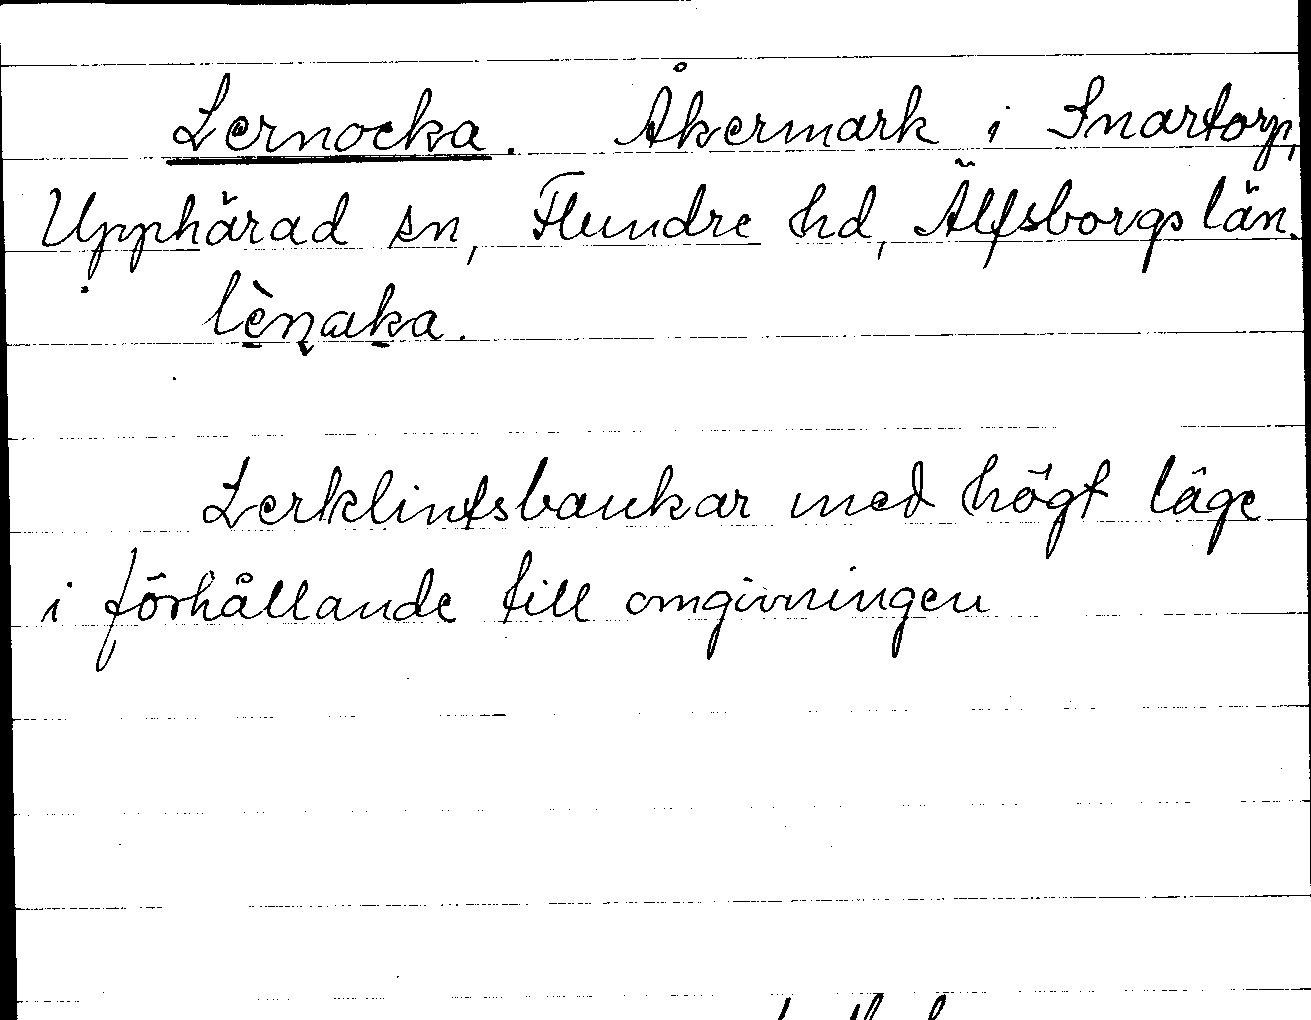 Lernocka. Åkermark i Snartorp,
Upphärad sn, Flundre hd, Älfsborgs län.
lènaka.
Lerklintsbankar med högt läge
i förhållande till omgivningen